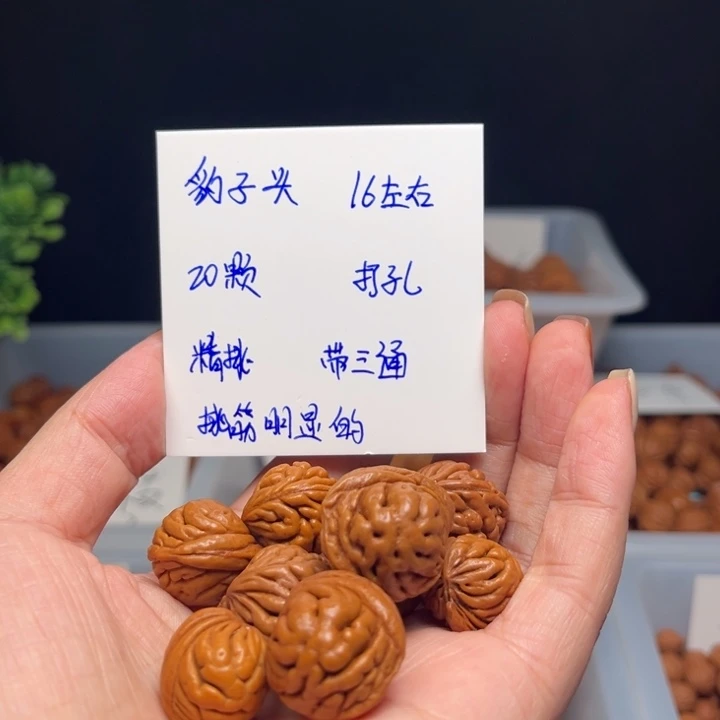 豹子头 16左右
20颗 打孔
精挑 带三通
挑筋明显的